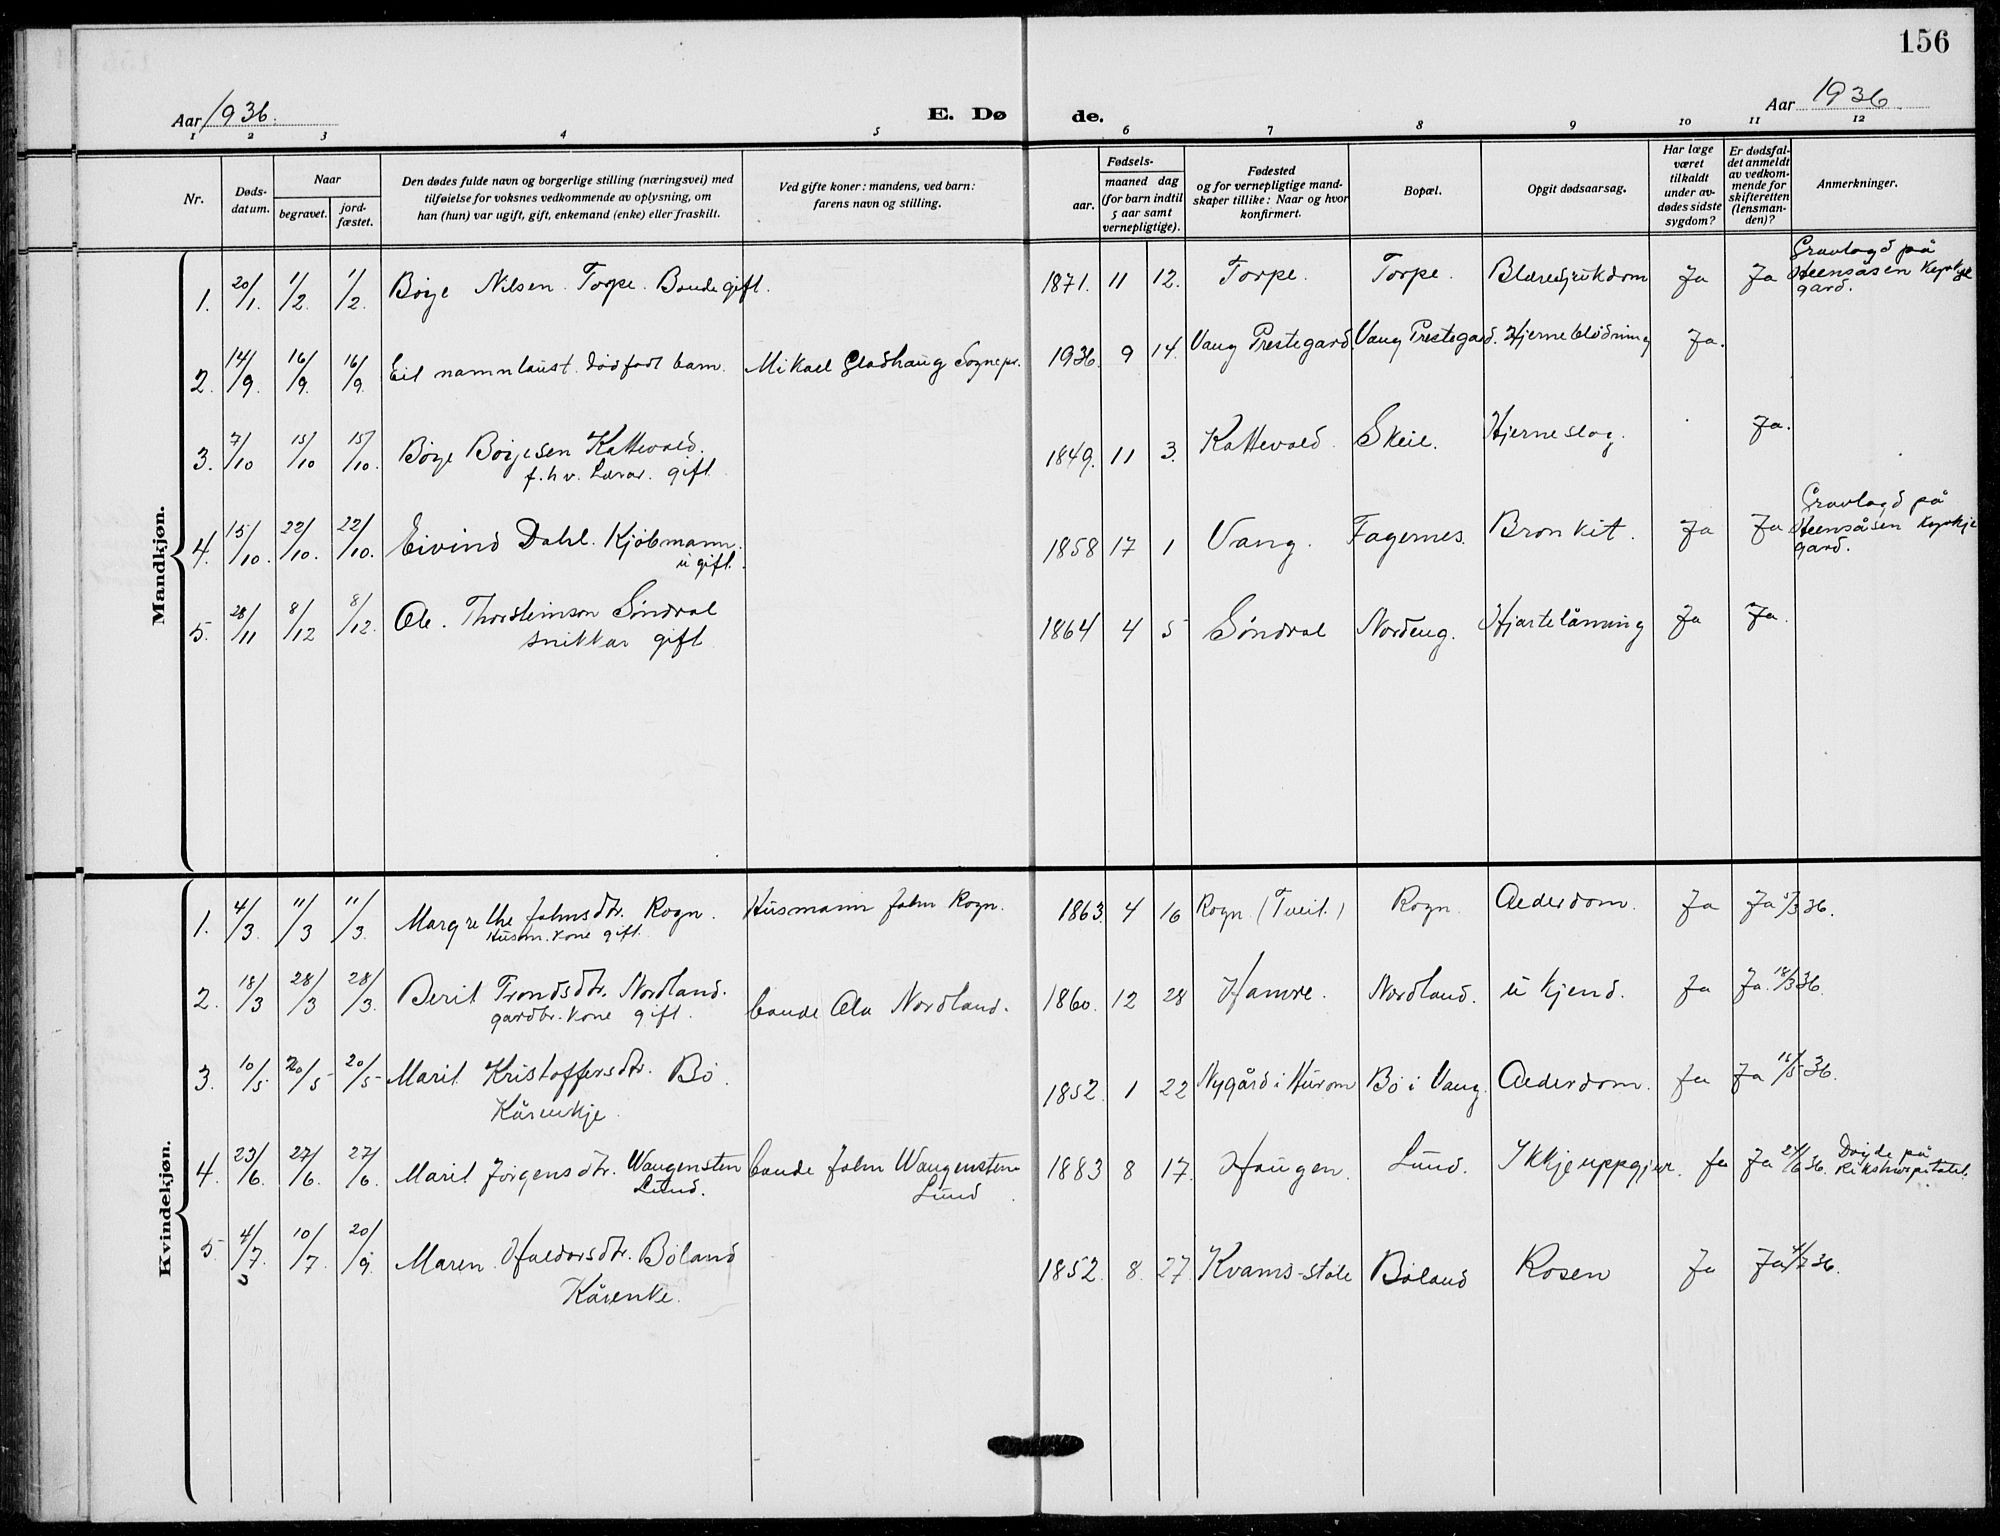 156
Aar 1936. E. Dø de. Aar 1936
1 2 3 4 5 6 7 8 9 10 11 12
Nr.
Døds-
datum.
Naar
begravet.
jord-
fæstet.
Den dødes fulde navn og borgerlige stilling (næringsvei) med
tilføielse for voksnes vedkommende av oplysning, om
han (hun) var ugift, gift, enkemand (enke) eller fraskilt.
Ved gifte koner: mandens, ved barn:
farens navn og stilling.
Fødsels-
aar.
maaned dag
(for barn indtil
5 aar samt
vernepligtige).
Fødested
og for vernepligtige mand-
skaper tillike: Naar og hvor
konfirmert.
Bopæl.
Opgit dødsaarsag.
Har læge
været
tilkaldt
under av-
dødes sidste
sygdom?
Er dødsfal-
det anmeldt
av vedkom-
mende for
skifteretten
(lensman-
den)?
Anmerkninger.
Mandkjøn.
1. 20/1. 1/2. 1/2. Børge Nilsen Torpe. Bonde gift. 1871. 11 12. Torpe. Torpe. Blæresjukdom Ja Ja Gravlagd på
Heensåsen Kyrkje
gard.
2. 14/9. 16/9. 16/9. Eit namnlaust dødfødt barn. Mikael Gladhaug Sognepr. 1936. 9 14. Vang Prestegard. Vang Prestegard. Hjerneblødning Ja.
3. 7/10 15/10 15/10. Børge Børgesen Kattevold. 1849. 11 3. Kattevold. Skeie. Hjerneslag. Ja.
f.h.v. Lærar. gift
4. 15/10. 22/10. 22/10. Eivind Dahl. Kjøbmann. 1858 17 1 Vang. Fagernes. Bronkit. Ja Ja Gravlagd på
ugift. Heensåsen Kyrkje
gard.
5. 28/11 8/12 8/12. Ole Thorsteinson Søndrol 1864 4 5 Søndrol Nordeng. Hjartelåming Ja Ja.
snikkar gift
Kvindekjøn.
1. 4/3. 11/3 11/3. Margrethe Johnsdtr. Rogn. Husmann John Rogn. 1863. 4 16 Rogn (Tveit.) Rogn. Alderdom. Ja Ja 5/3 36.
Husm. kone gift.
2. 18/3 28/3 28/3. Berit Trondsdtr. Nordland. bonde Ola Nordland. 1860. 12 28 Hamre. Nordland. ukjend. Ja Ja. 18/3 36.
gardbr. kone gift.
3. 10/5 20/5 20/5 Marit Kristoffersdtr. Bø. 1852. 1 22 Nygård i Hurom Bø i Vang. Alderdom. Ja Ja 15/5 36.
Kårenkje.
4. 23/6. 27/6. 27/6. Marit Jörgensdtr. Wangensten bonde John Wangensten 1883 8 17. Haugen. Lund. Ikkje uppgjeve. Ja Ja 24/6 36. Døyde på
Lund. Lund. Rikshospitalet.
5 4/7. 10/7. 20/9. Maren Haldorsdtr. Bøland 1852. 8. 27. Kvams-støle Bøland Rosen Ja Ja 4/7 36.
Kårenke.